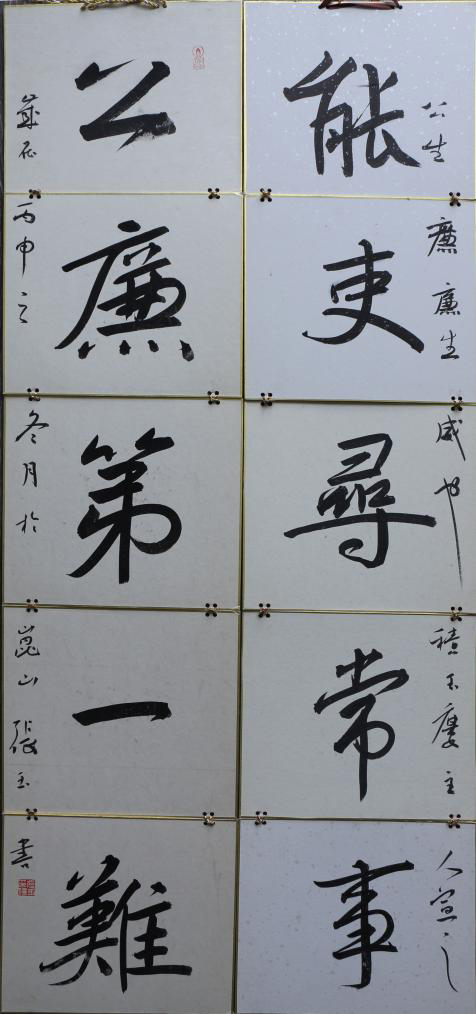 公生廉廉生威也積玉廔主人宣之
能吏尋常事
公廉第一難
歲在丙申之冬月於崑山張玉書